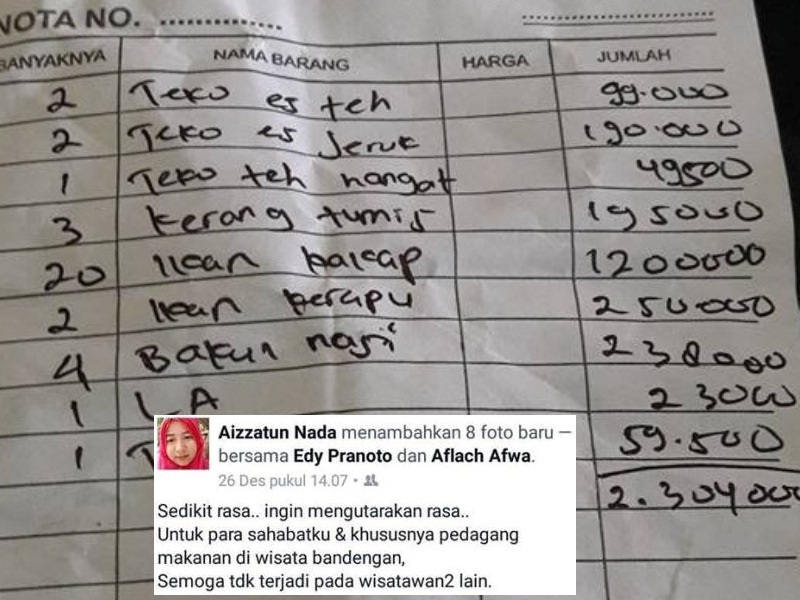 NOTA NO. ..............
BANYAKNYA NAMA BARANG HARGA JUMLAH
2 Teko es teh 99.000
2 Teko es Jeruk 190.000
1 Teko teh hangat 49500
3 kerang tumis 195000
20 Ikan bakap 1200000
2 Ikan kerapu 250.000
4 Bakul nasi 238000
1 LA 23000
1 59.500
2.304000
Aizzatun Nada menambahkan 8 foto baru —
bersama Edy Pranoto dan Aflach Afwa.
26 Des pukul 14.07
Sedikit rasa.. ingin mengutarakan rasa..
Untuk para sahabatku & khususnya pedagang
makanan di wisata bandengan,
Semoga tdk terjadi pada wisatawan2 lain.